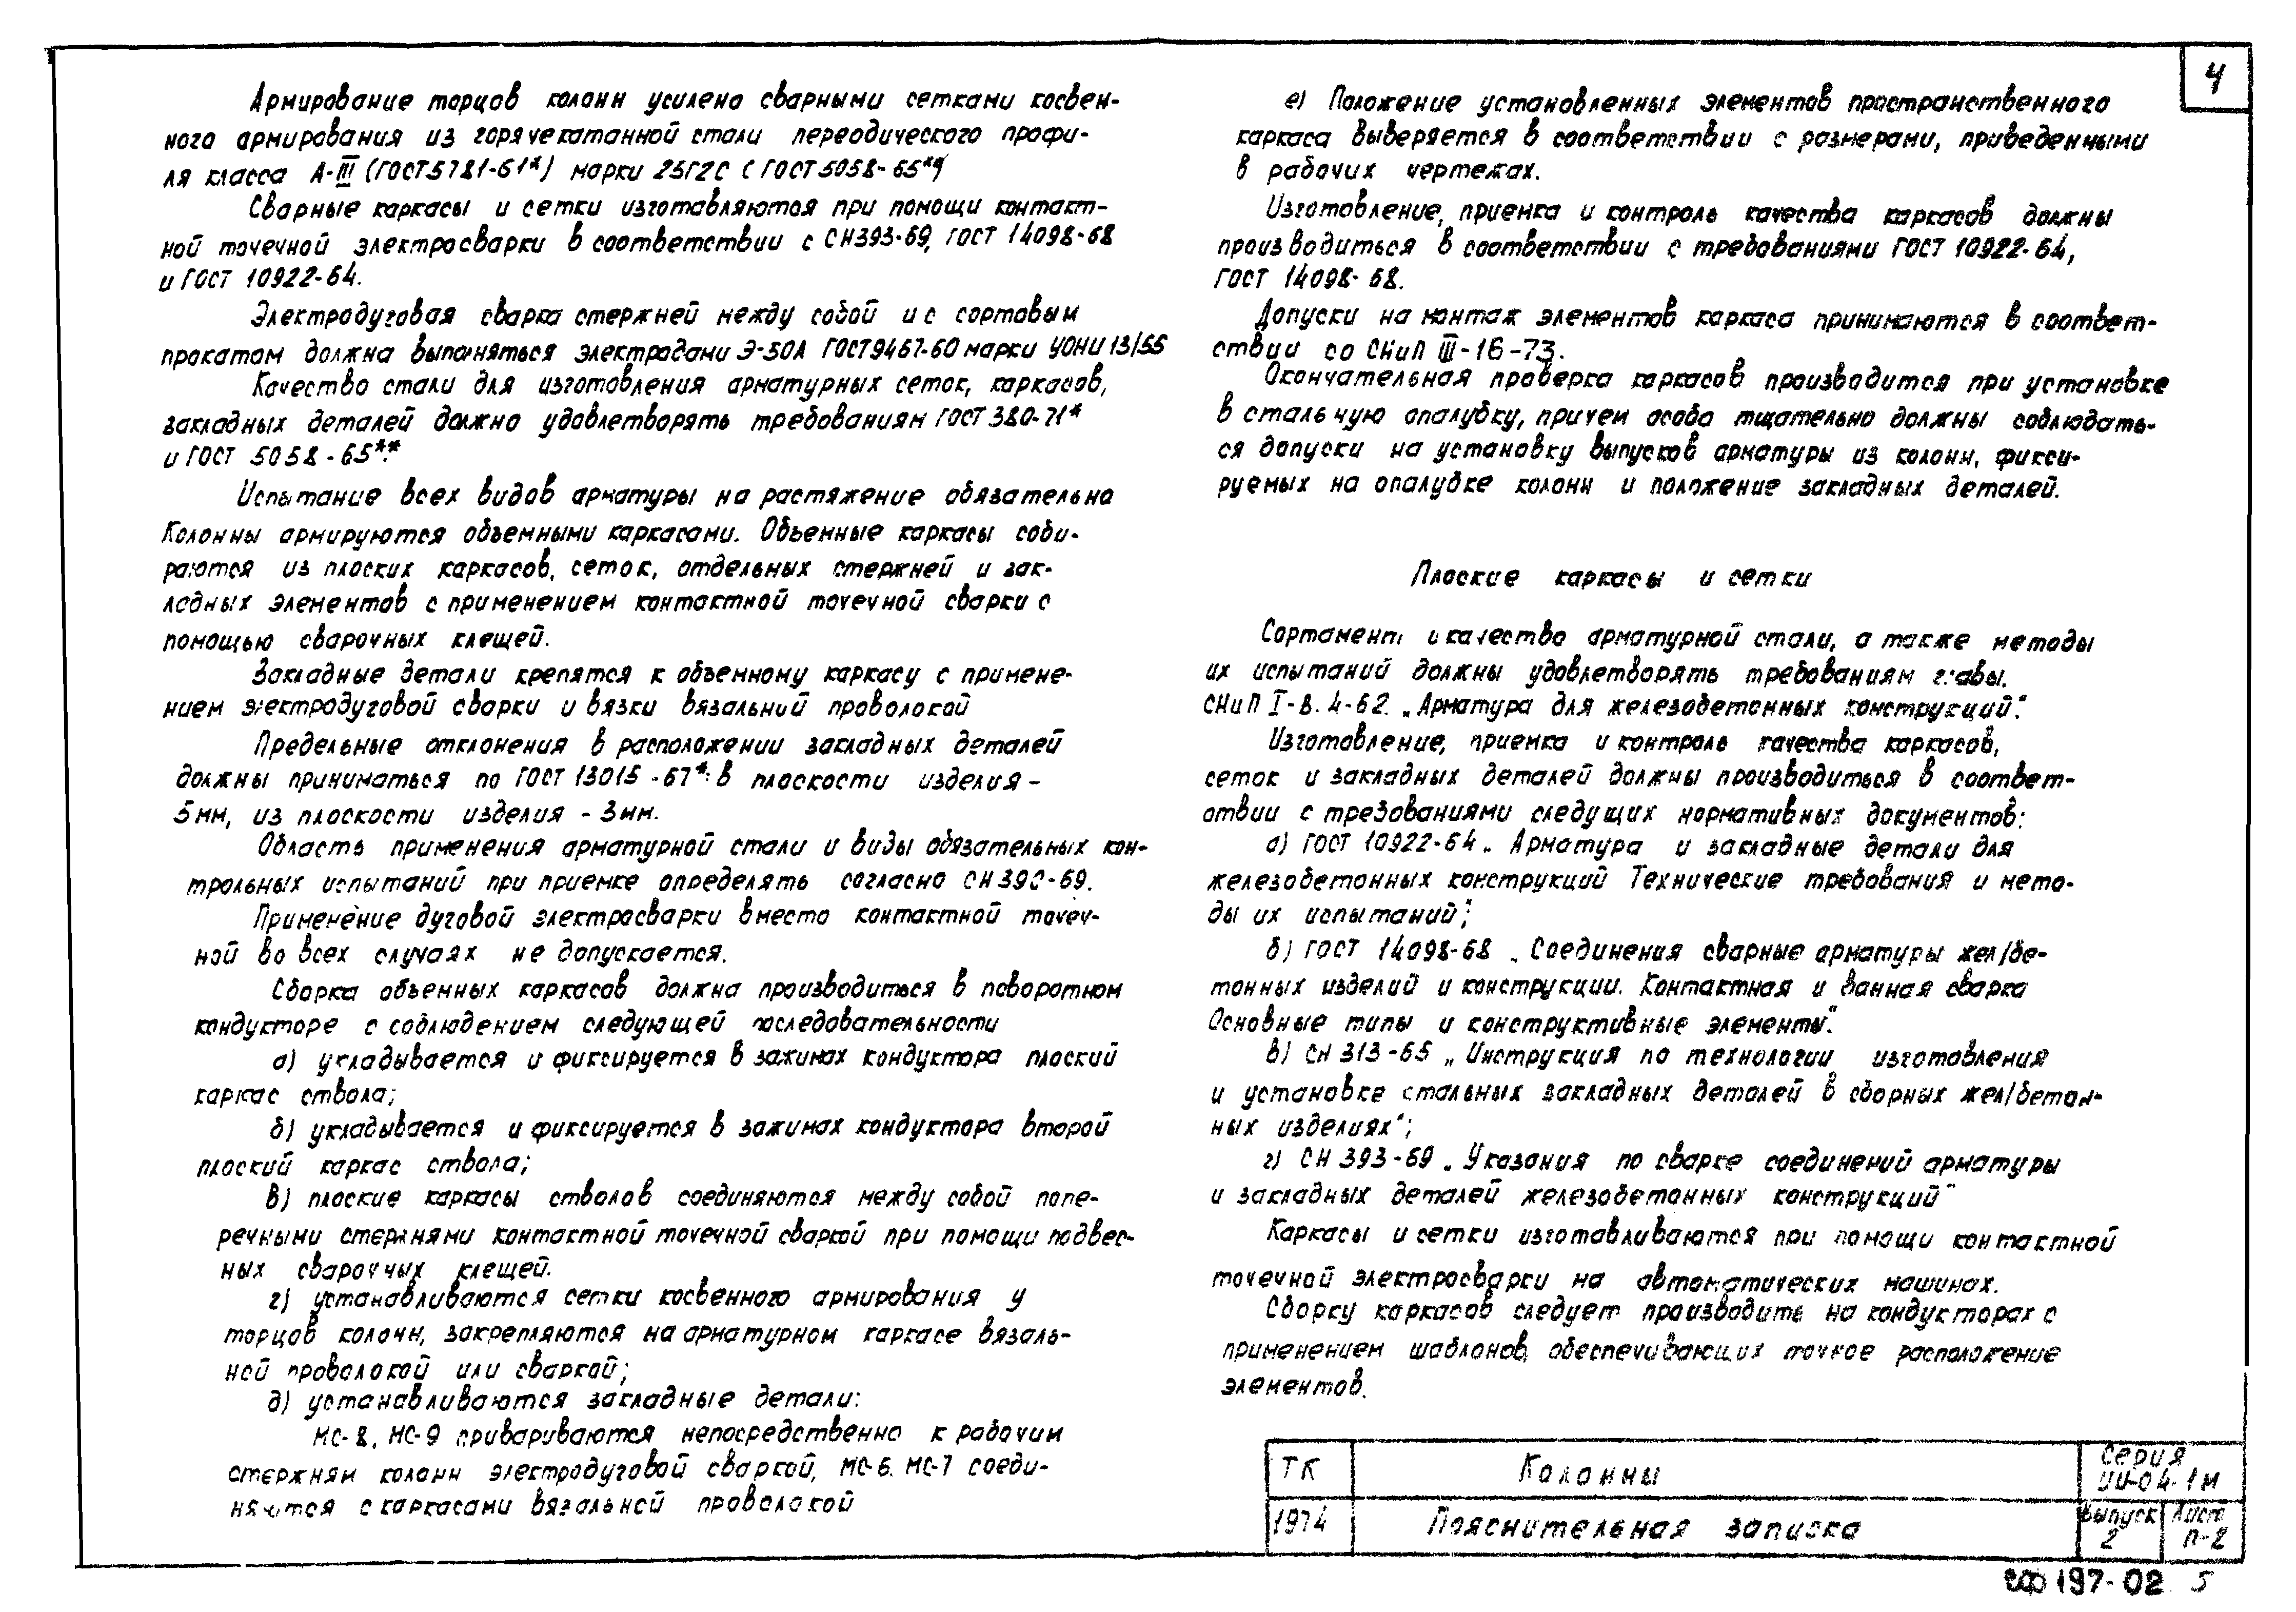 4
Армирование торцов колонн усилено сварными сетками косвен-
ного армирования из горячекатанной стали переодического профи-
ля класса А-III (ГОСТ 5781-61*) марки 25Г2С (ГОСТ 5058-65**)
Сварные каркасы и сетки изготавляются при помощи контакт-
ной точечной электросварки в соответствии с СН393-69, ГОСТ 14098-68
и ГОСТ 10922-64.
Электродуговая сварка стержней между собой и с сортовым
прокатом должна выполняться электродами Э-50А ГОСТ9467-60 марки УОНИ 13/55
Качество стали для изготовления арматурных сеток, каркасов,
закладных деталей должно удовлетворять требованиям ГОСТ 380-71*
и ГОСТ 5058-65**.
Испытание всех видов арматуры на растяжение обязательно
Колонны армируются объемными каркасами. Объемные каркасы соби-
раются из плоских каркасов, сеток, отдельных стержней и зак-
ладных элементов с применением контактной точечной сварки с
помощью сварочных клещей.
Закладные детали крепятся к объемному каркасу с примене-
нием электродуговой сварки и вязки вязальной проволокой
Предельные отклонения в расположении закладных деталей
должны приниматься по ГОСТ 13015-67*: в плоскости изделия -
5мм, из плоскости изделия - 3мм.
Область применения арматурной стали и виды обязательных кон-
трольных испытаний при приемке определять согласно СН 390-69.
Применение дуговой электросварки вместо контактной точеч-
ной во всех случаях не допускается.
Сборка объемных каркасов должна производиться в поворотном
кондукторе с соблюдением следующей последовательности
а) укладывается и фиксируется в зажимах кондуктора плоский
каркас ствола;
б) укладывается и фиксируется в зажимах кондуктора второй
плоский каркас ствола;
в) плоские каркасы стволов соединяются между собой попе-
речными стержнями контактной точечной сваркой при помощи подвес-
ных сварочных клещей.
г) устанавливаются сетки косвенного армирования у
торцов колонн, закрепляются на арматурном каркасе вязаль-
ной проволокой или сваркой;
д) устанавливаются закладные детали:
МС-8, МС-9 привариваются непосредственно к рабочим
стержням колонн электродуговой сваркой, МС-6. МС-7 соеди-
няются с каркасами вязальной проволокой
е) Положение установленных элементов пространственного
каркаса выверяется в соответствии с размерами, приведенными
в рабочих чертежах.
Изготовление, приемка и контроль качества каркасов должны
производиться в соответствии с требованиями ГОСТ 10922-64,
ГОСТ 14098-68.
Допуски на монтаж элементов каркаса принимаются в соответ-
ствии со СНиП III-16-73.
Окончательная проверка каркасов производится при установке
в стальную опалубку, причем особо тщательно должны соблюдать-
ся допуски на установку выпусков арматуры из колонн, фикси-
руемых на опалубке колонн и положение закладных деталей.
Плоские каркасы и сетки
Сортамент и качество арматурной стали, а также методы
их испытаний должны удовлетворять требованиям главы.
СНиП I-В.4-62. „Арматура для железобетонных конструкций".
Изготовление, приемка и контроль качества каркасов,
сеток и закладных деталей должны производиться в соответ-
ствии с требованиями следущих нормативных документов:
а) ГОСТ 10922-64 „ Арматура и закладные детали для
железобетонных конструкций Технические требования и мето-
ды их испытаний";
б) ГОСТ 14098-68 „Соединения сварные арматуры жел/бе-
тонных изделий и конструкции. Контактная и ванная сварка
Основные типы и конструктивные элементы".
в) СН 313-65 „Инструкция по технологии изготовления
и установке стальных закладных деталей в сборных жел/бетон-
ных изделиях";
г) СН 393-69 „Указания по сварке соединений арматуры
и закладных деталей железобетонных конструкций"
Каркасы и сетки изготавливаются при помощи контактной
точечной электросварки на автоматических машинах.
Сборку каркасов следует производить на кондукторах с
применением шаблонов, обеспечивающих точное расположение
элементов.
ТК
Колонны
Серия
ИИ-04-1М
1974
Пояснительная записка
Выпуск
2
Лист
П-2
СФ 197-02 5